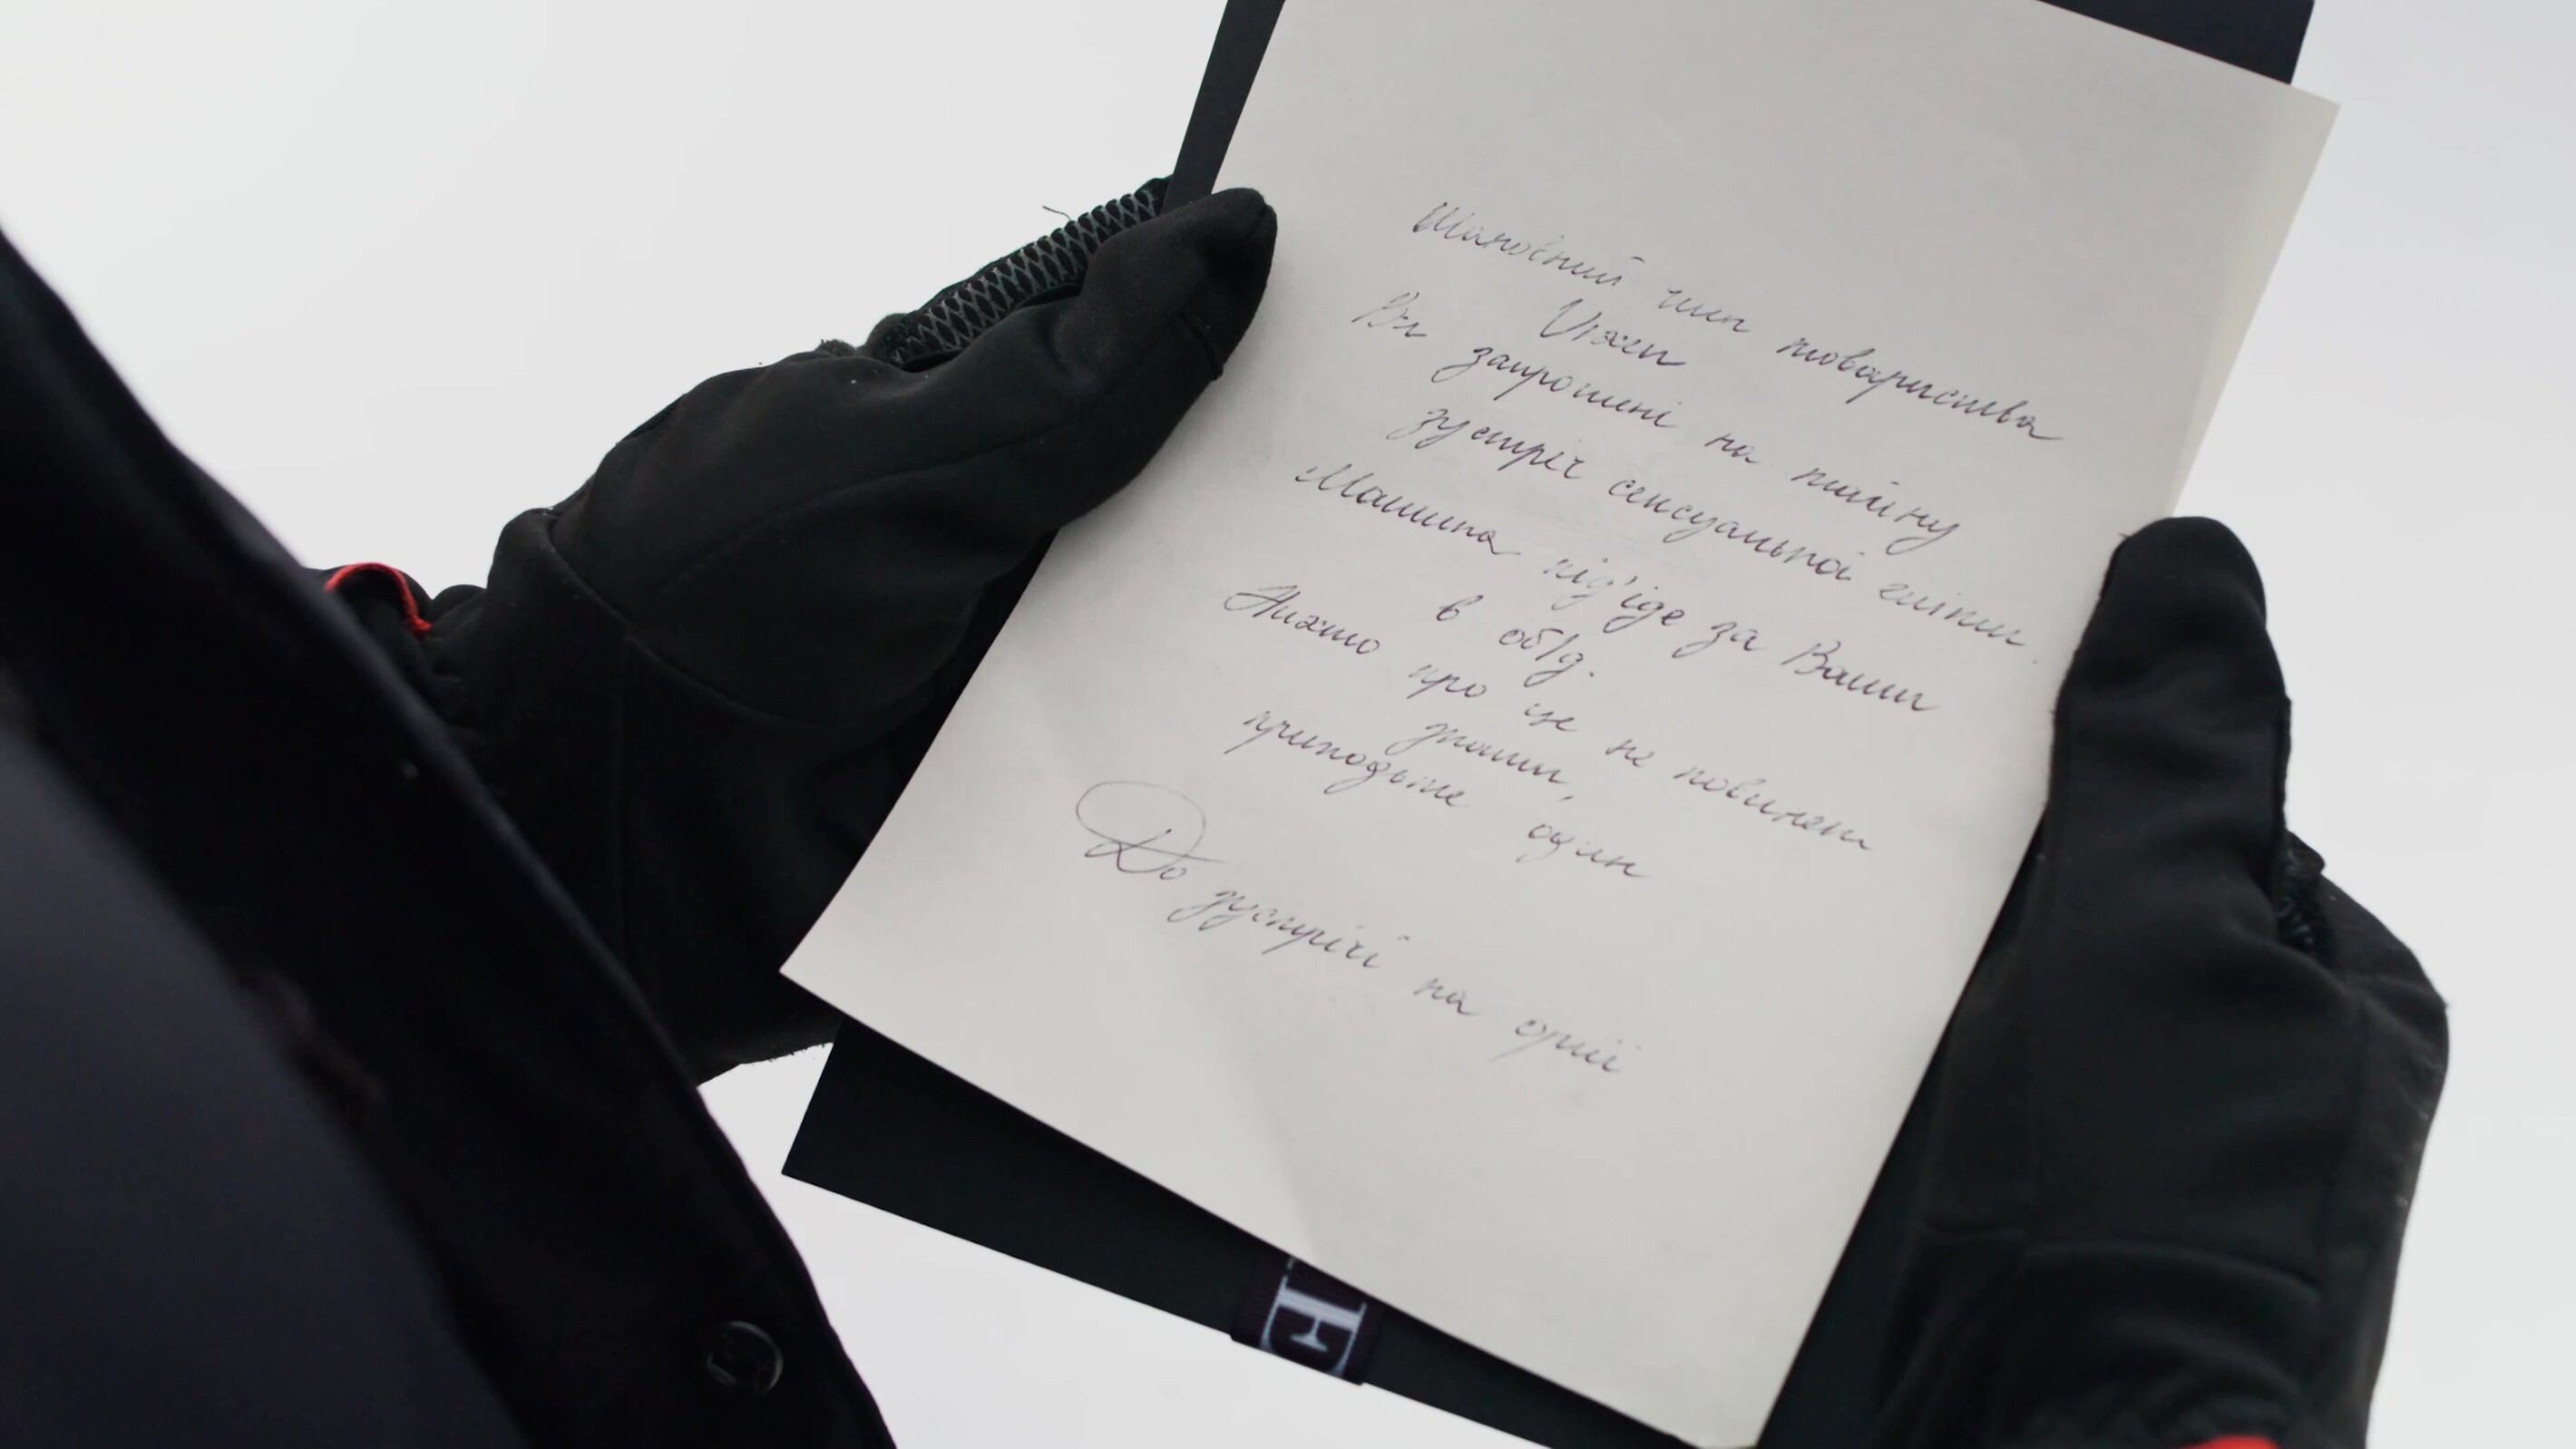 Шановний член товариства
Vixen
Ви запрошені на тайну
зустріч сексуальної еліти.
Машина під'їде за Вами
в обід.
Ніхто про це не повинен
знати,
приходьте один
До зустрічі на оргії
E